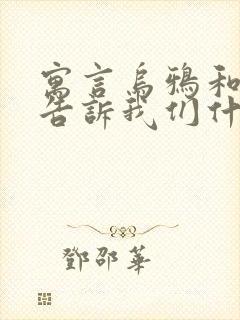 寓言烏鴉和
告訴我们什
鄧邵華